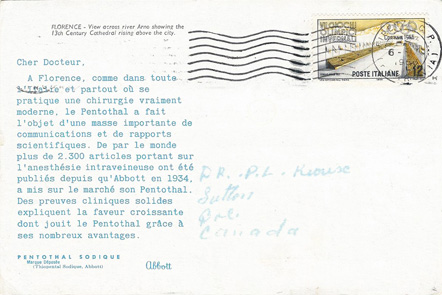 FLORENCE - View across river Arno showing the
13th Century Cathedral rising above the city.
VII GIOCHI
OLIMPICI
INVERNALI
POSTE ITALIANE
Cher Docteur,
A Florence, comme dans toute
et partout où se
pratique une chirurgie vraiment
moderne, le Pentothal a fait
l'objet d'une masse importante de
communications et de rapports
scientifiques. De par le monde
plus de 2.300 articles portant sur
l'anesthésie intraveineuse ont été
publiés depuis qu'Abbott en 1934,
a mis sur le marché son Pentothal.
Des preuves cliniques solides
expliquent la faveur croissante
dont jouit le Pentothal grâce à
ses nombreux avantages.
DR. P.L.
Sutton
Canada
PENTOTHAL SODIQUE
Marque Déposée
(Thiopental Sodique, Abbott)
Abbott